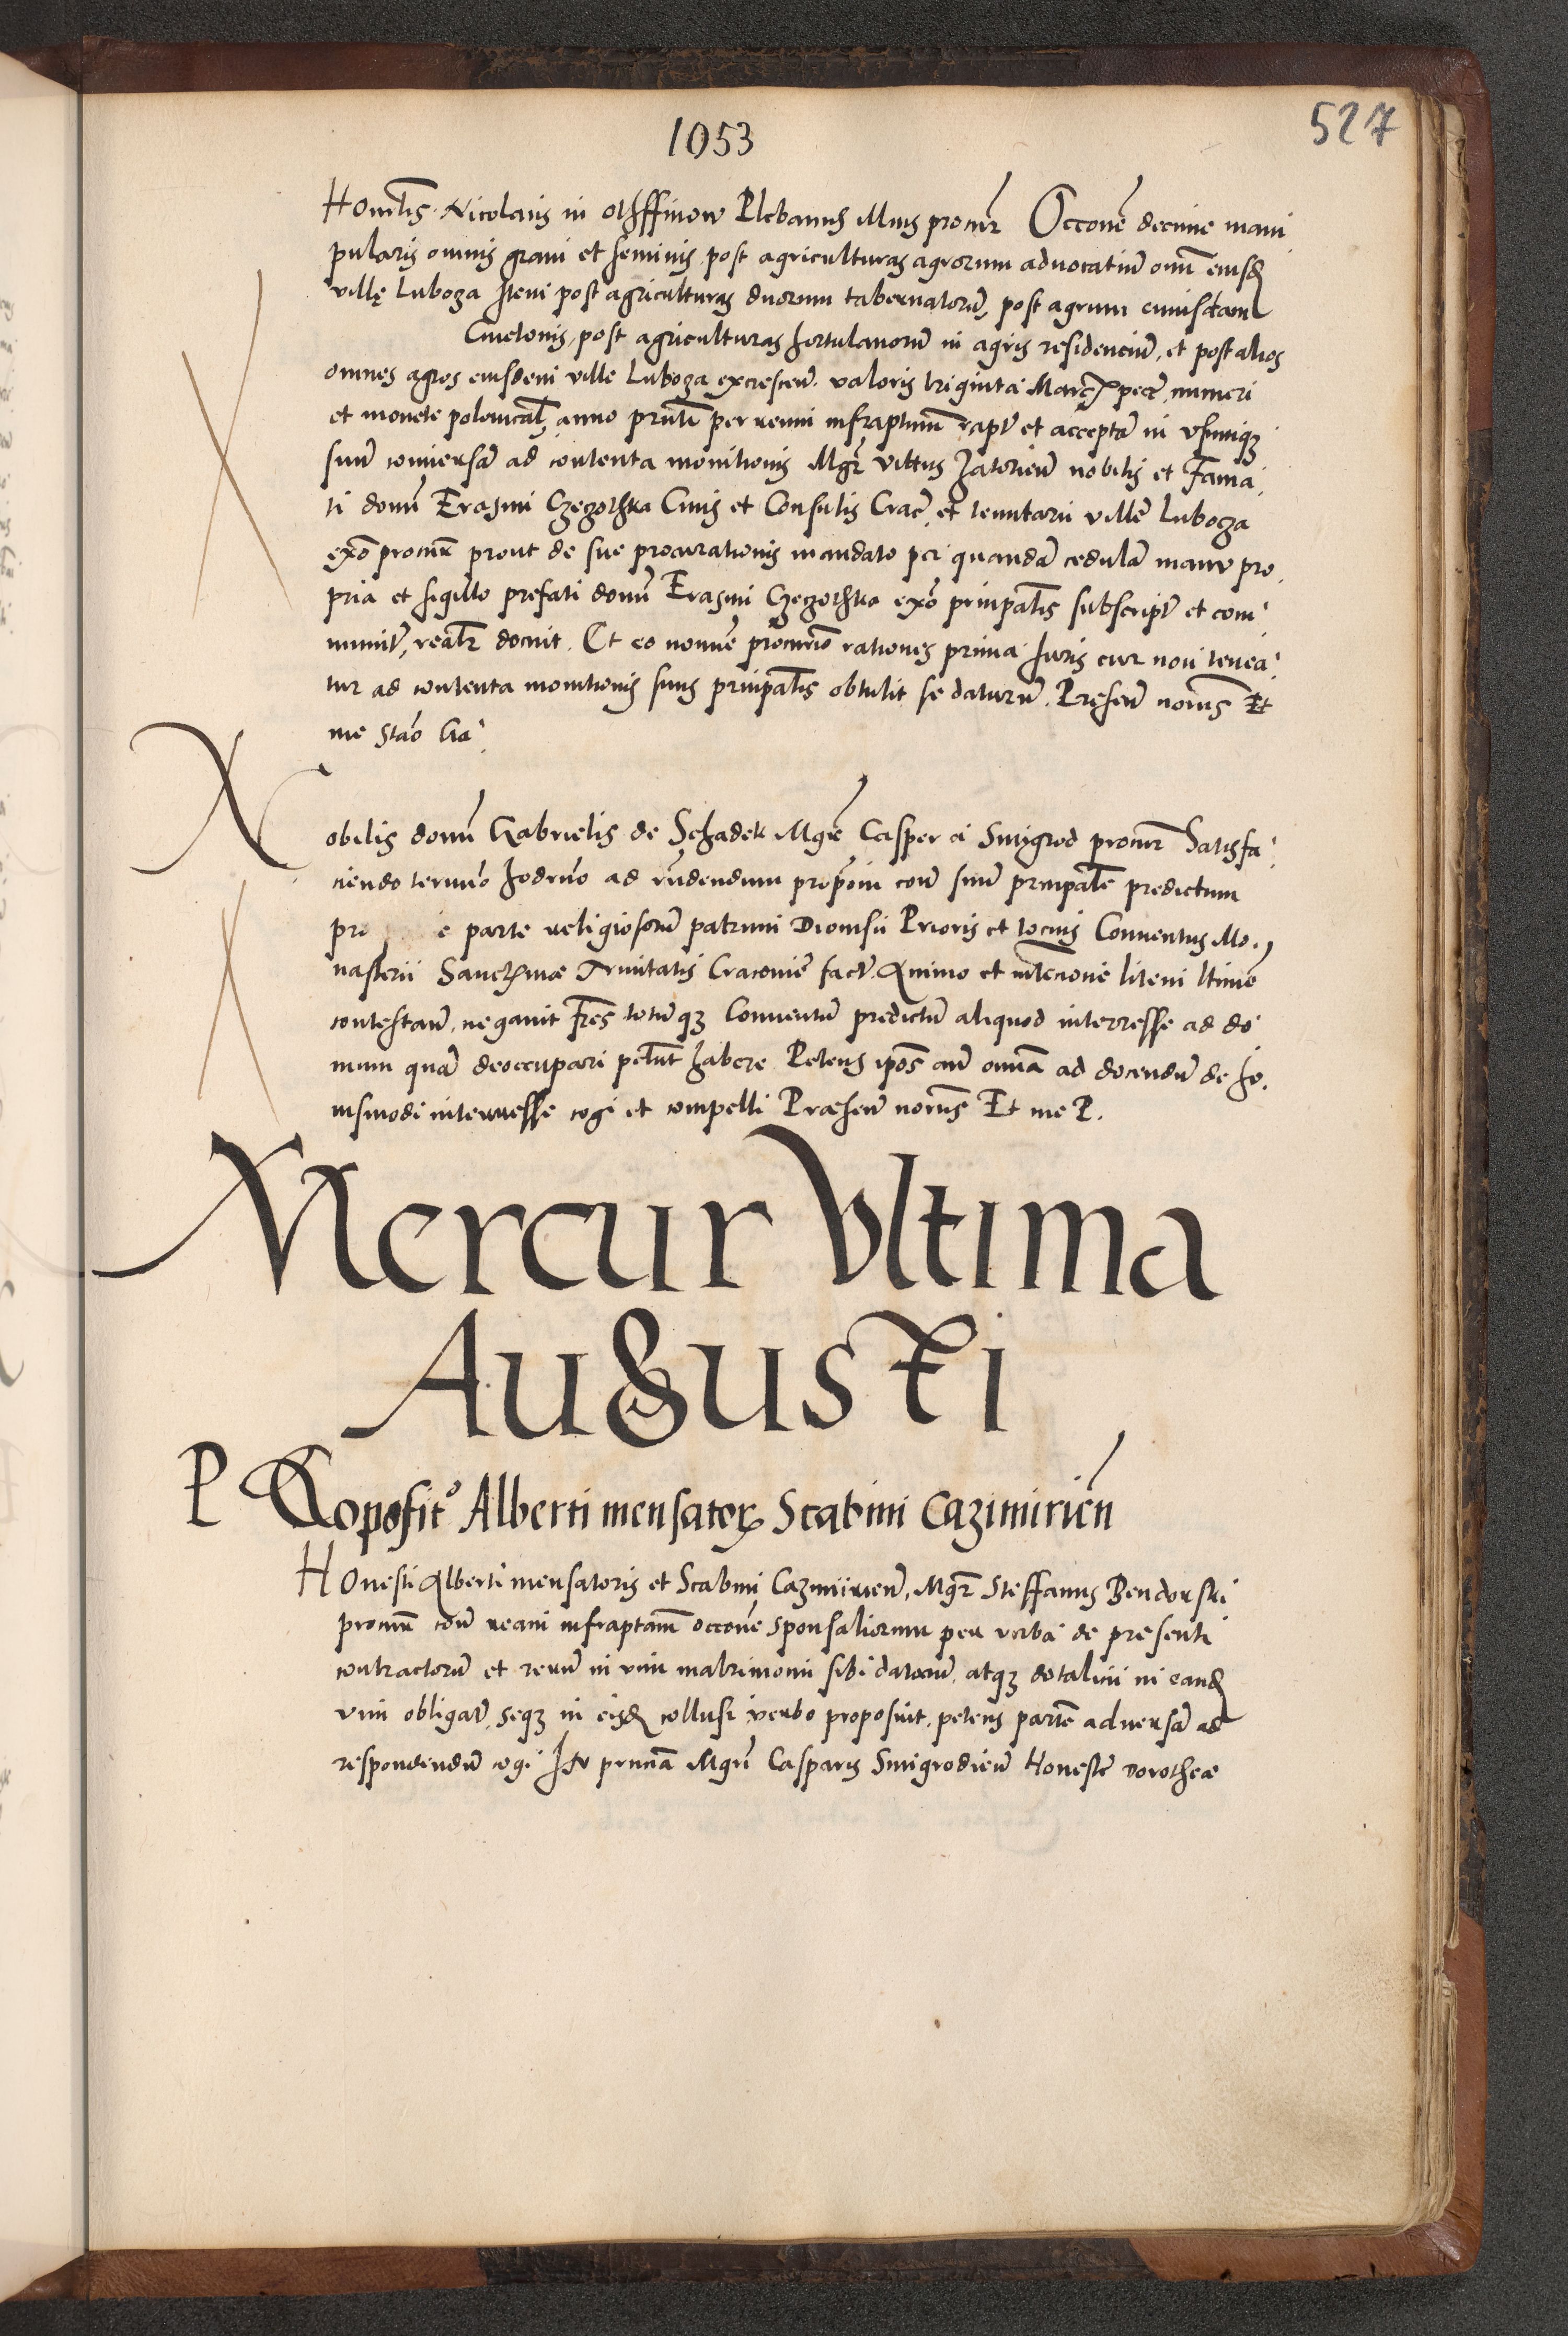 1053
527
Honrlis Nicolaus in Olhffinow Plebanus Illius procur̄ Occone̅ decime mani
pularis omnis grani et seminis post agriculturas agrorum aduocatium omnī eiusd
villę Luboza Item post agriculturas duorum tabernatorū, post agrum cuiusdam
Cmetonis, post agriculturas hortulanorū in agris residenciū, et post alios
omnes agros eiusdem ville Luboza excrescen̄ valoris triginta Marc pec̄ numeri
et monete polonical, anno pn̄ti per reum infraptum rapt̄ et accepta̅ in vsumq3
suū conuersa̅ ad contenta monitionis Mgr̄ Vittus Jatorien̄ nobilis et Fama
ti domī Erasmi Czeczothka Ciuis et Consulis Crac̄, et tenutarii ville̅ Luboza
exo̅ procur̄ prout de sue procurationis mandato per quanda̅ cedula̅ manu pro
pria et sigillo prefati domī Erasmi Czeczothka exo̅ prinpalis subscript̄ et com
munit̄, realr̄ docuit. Et eo nomē procurio rationes prima Iuris cur non tenea
tur ad contenta monitionis suus prinpalis obtulit se daturū. Presen̄ norius Et
me Stao Ga
Nobilis domī Gabrielis de Schadek Mgr̄ Casper a Smigrod procur̄ Satisfa
ciendo termīo hodrno ad rn̄dendum proponi con̄ suū prinpale̅ predictum
pro e parte religiosorū patrum Dionisii Prioris et tocius Conuentus Mo
nasterii Sanctmæ Trinitatis Cracouie̅ fact̄. Animo et intenone litem ltime̅
contestan̄, negauit Frēs totūq3 Conuentū predictū aliquod interresse ad do
mum qua̅ deoccupari petunt habere Petens ipos an̄ omīa ad docendū de ho
iusmodi interresse cogi et compelli Præsen̄ norius Et me P.
Mercur Vltima
Augusti
P Ropositō Alberti mensatoris Scabini Cazimirien̄
Honesti Alberti mensatoris et Scabini Cazmiirien̄, Mgr̄ Steffanus Bendonski
procur̄ con̄ ream infraptam occone̅ sponsaliorum per verba de presenti
contractorū et rerū in vim matrimonii sibi datarū, atq3 dotalicii in eand
vim obligat̄, seq3 in eisd collusi verbo proposuit, petens parte̅ aduersa̅ ad
respondendū cogi In pn̄cia Mgrī Casparis Smigrodien̄ Honeste̅ Dorotheæ